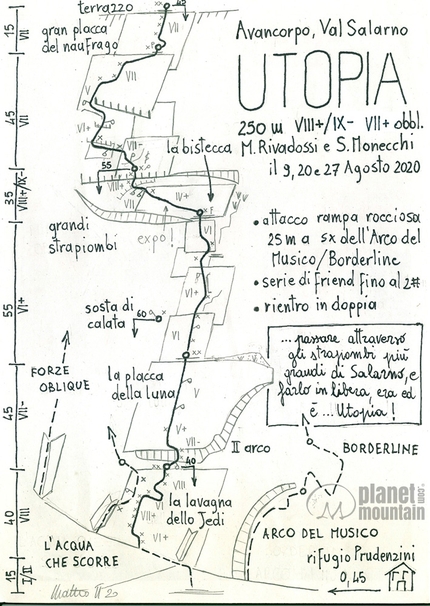 terrazzo
gran placca
del naufrago
Avancorpo, Val Salarno
UTOPIA
250 m VIII+/IX- VII+ obbl.
M. Rivadossi e S. Monecchi
il 9, 20 e 27 Agosto 2020
15
VII
45
VII
35
VIII+/IX-
55
VI+
45
VII-
40
VIII
15
I/II
VII
VII
V
VI+
VII-
55
VIII+
VII
la bistecca
IV+
VI
grandi
strapiombi
expo!
• attacco rampa rocciosa
25 m a sx dell'Arco del
Musico/Borderline
• serie di Friend fino al 2#
• rientro in doppia
VI+
sosta di
calata
60
VI
...passare attraverso
gli strapiombi più
grandi di Salarno, e
farlo in libera, era ed
è ... Utopia!
FORZE
OBLIQUE
la placca
della luna
V
V+
VII-
II arco
40
BORDERLINE
la lavagna
dello Jedi
VIII
VII
VII+
planet
mountain
.com
ARCO DEL MUSICO
rifugio Prudenzini
0,45
L'ACQUA
CHE SCORRE